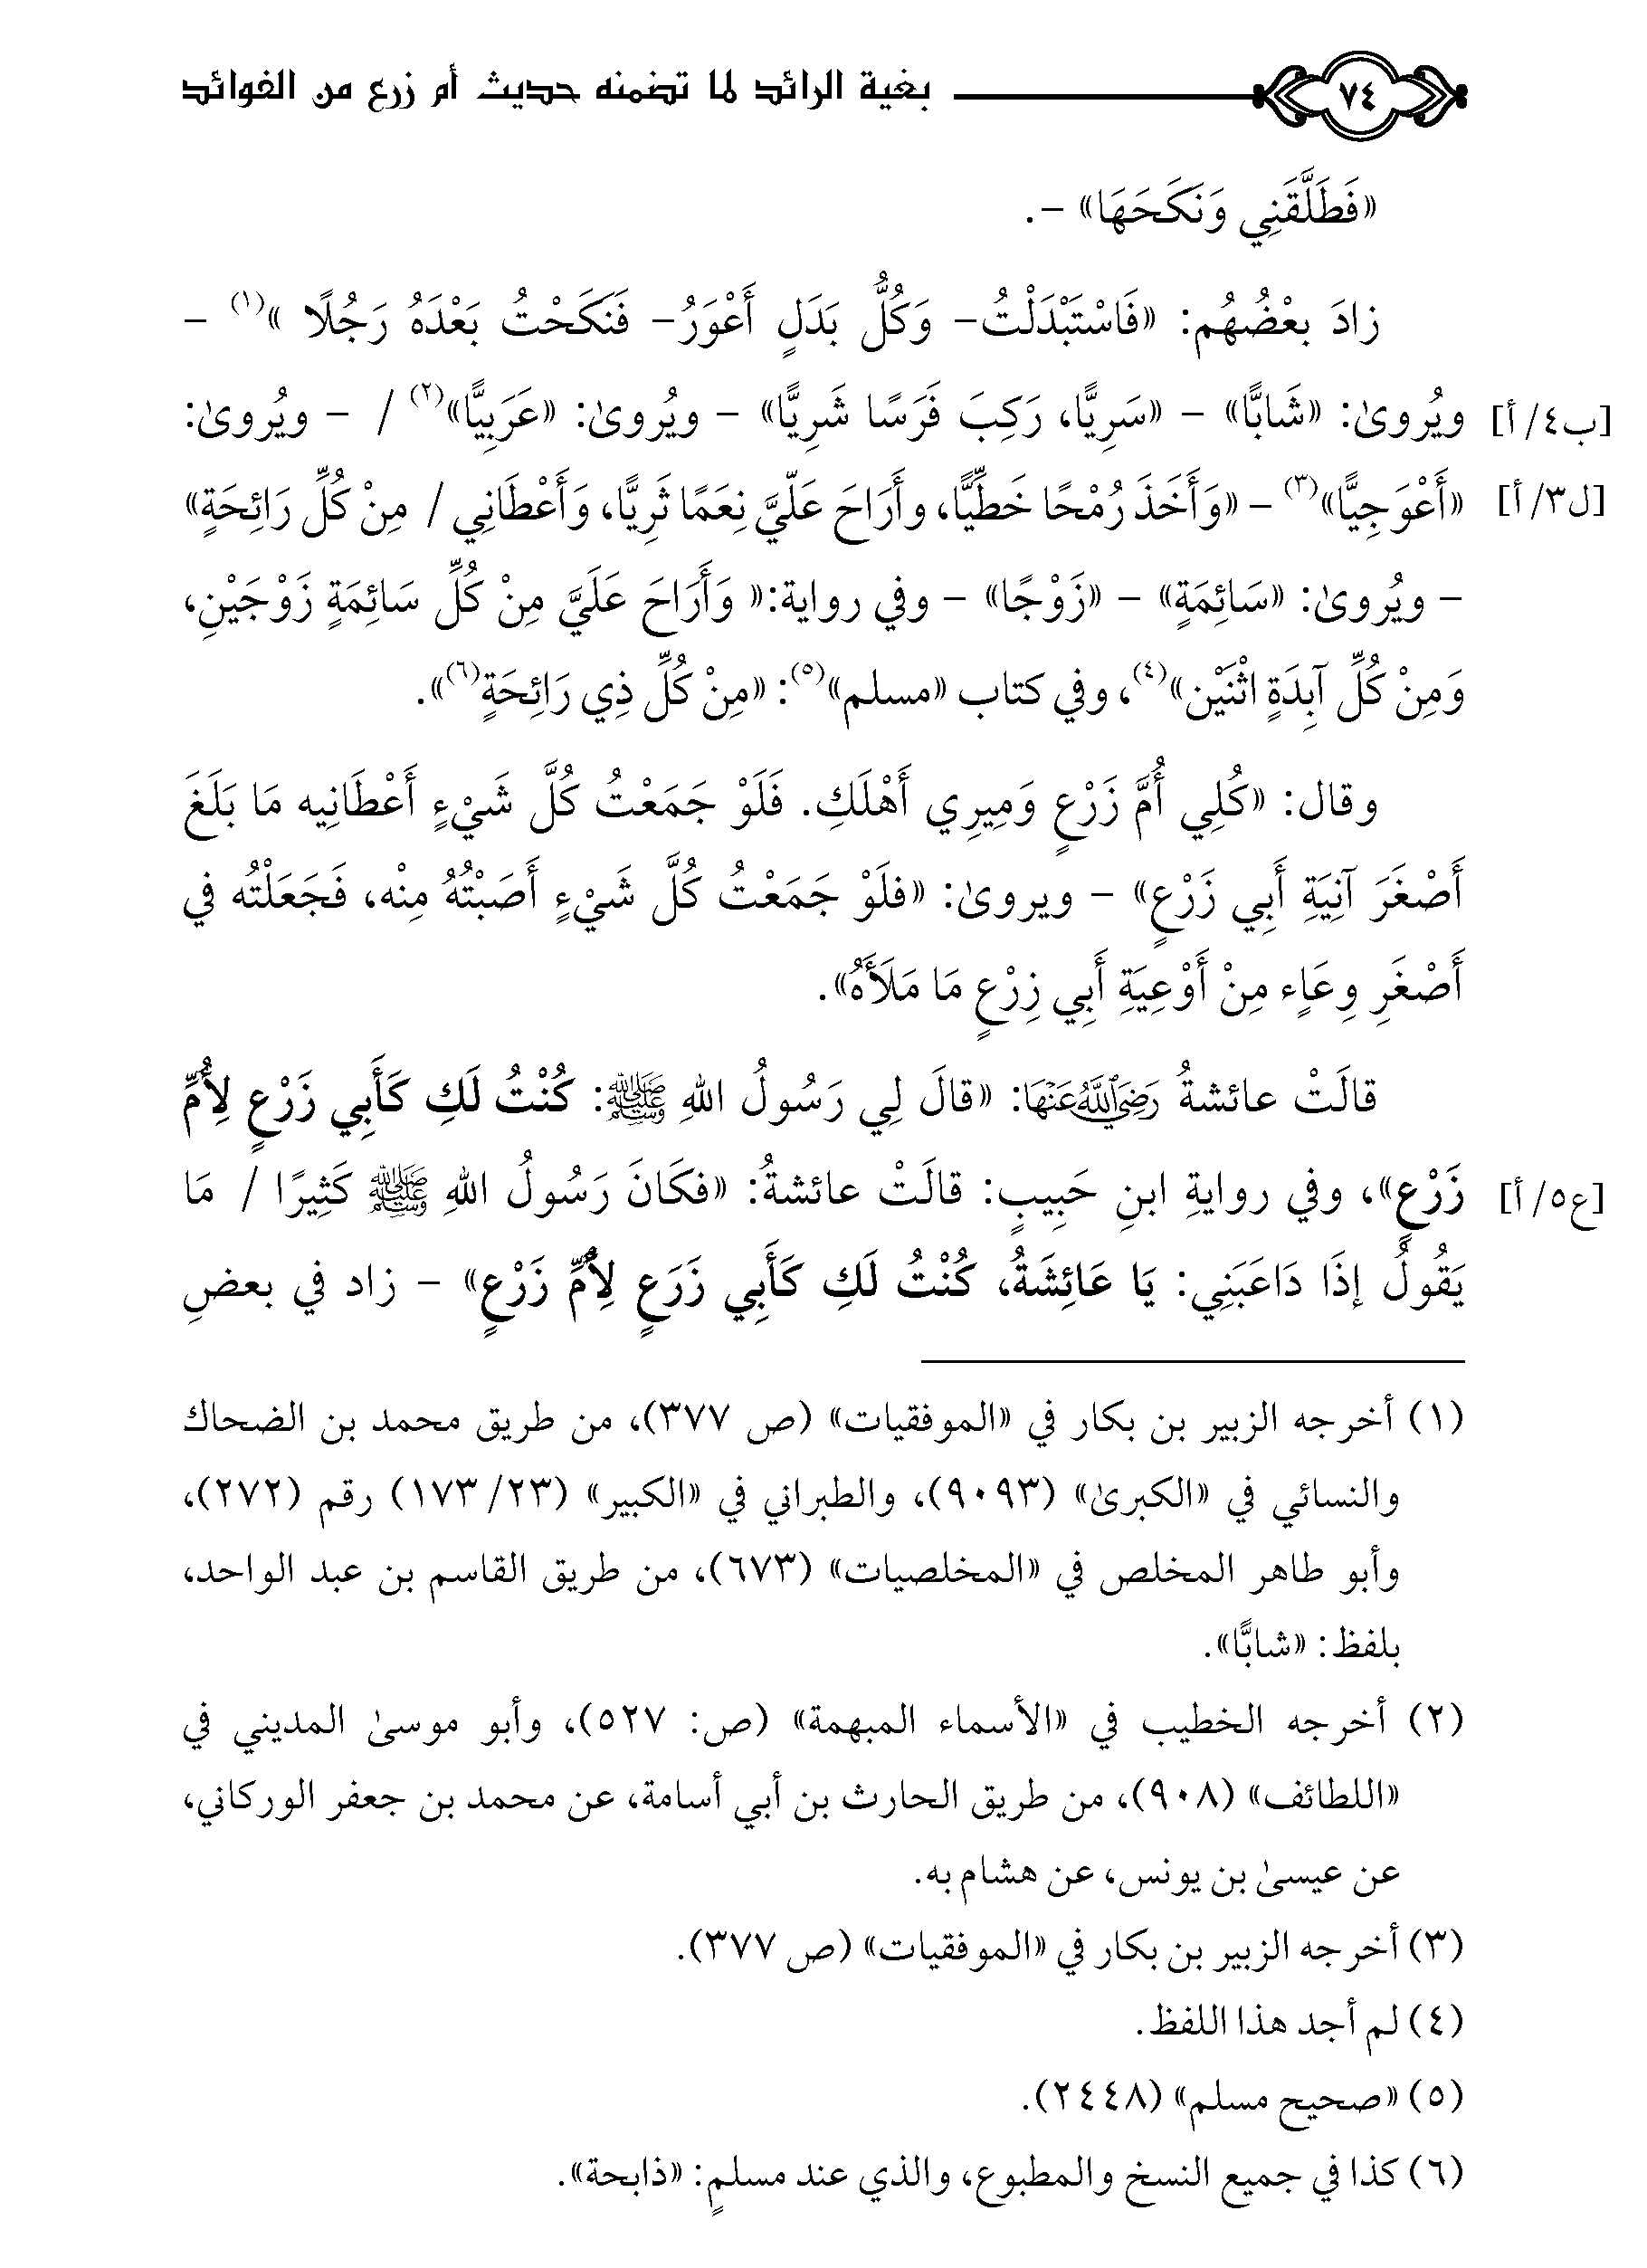 ٧٤ بغية الرائد لما تضمنه حديث أم زرع من الفوائد
«فَطَلَّقَنِي وَنَكَحَهَا» –.
زادَ بعْضُهُم: «فَاسْتَبْدَلْتُ– وَكُلُّ بَدَلٍ أَعْوَرُ– فَنَكَحْتُ بَعْدَهُ رَجُلًا »(١) –
[ب٤/ أ] ويُروىٰ: «شَابًّا» – «سَرِيًّا، رَكِبَ فَرَسًا شَرِيًّا» – ويُروىٰ: «عَرَبِيًّا»(٢) / – ويُروىٰ:
[ل٣/ أ] «أَعْوَجِيًّا»(٣) – «وَأَخَذَ رُمْحًا خَطِّيًّا، وأَرَاحَ عَلّيَّ نِعَمًا ثَرِيًّا، وَأَعْطَانِي / مِنْ كُلِّ رَائِحَةٍ»
– ويُروىٰ: «سَائِمَةٍ» – «زَوْجًا» – وفي رواية:« وَأَرَاحَ عَلَيَّ مِنْ كُلِّ سَائِمَةٍ زَوْجَيْنِ،
وَمِنْ كُلِّ آبِدَةٍ اثْنَيْن»(٤)، وفي كتاب «مسلم»(٥): «مِنْ كُلِّ ذِي رَائِحَةٍ(٦)».
وقال: «كُلِي أُمَّ زَرْعٍ وَمِيرِي أَهْلَكِ. فَلَوْ جَمَعْتُ كُلَّ شَيْءٍ أَعْطَانِيه مَا بَلَغَ
أَصْغَرَ آنِيَةِ أَبِي زَرْعٍ» – ويروىٰ: «فلَوْ جَمَعْتُ كُلَّ شَيْءٍ أَصَبْتُهُ مِنْه، فَجَعَلْتُه في
أَصْغَرِ وِعَاٍء مِنْ أَوْعِيَةِ أَبِي زِرْعٍ مَا مَلَأَهُ».
قالَتْ عائشةُ رَضِيَ اللَّهُ عَنْهَا: «قالَ لِي رَسُولُ اللهِ ﷺ: كُنْتُ لَكِ كَأَبِي زَرْعٍ لِأُمِّ
[ع٥/ أ] زَرْعٍ»، وفي روايةِ ابنِ حَبِيبٍ: قالَتْ عائشةُ: «فكَانَ رَسُولُ اللهِ ﷺ كَثِيرًا / مَا
يَقُولُ إذَا دَاعَبَنِي: يَا عَائِشَةُ، كُنْتُ لَكِ كَأَبِي زَرَعٍ لِأُمِّ زَرْعٍ» – زاد في بعضِ
(١) أخرجه الزبير بن بكار في «الموفقيات» (ص ٣٧٧)، من طريق محمد بن الضحاك
والنسائي في «الكبرىٰ» (٩٠٩٣)، والطبراني في «الكبير» (٢٣/ ١٧٣) رقم (٢٧٢)،
وأبو طاهر المخلص في «المخلصيات» (٦٧٣)، من طريق القاسم بن عبد الواحد،
بلفظ: «شابًّا».
(٢) أخرجه الخطيب في «الأسماء المبهمة» (ص: ٥٢٧)، وأبو موسىٰ المديني في
«اللطائف» (٩٠٨)، من طريق الحارث بن أبي أسامة، عن محمد بن جعفر الوركاني،
عن عيسىٰ بن يونس، عن هشام به.
(٣) أخرجه الزبير بن بكار في «الموفقيات» (ص ٣٧٧).
(٤) لم أجد هذا اللفظ.
(٥) «صحيح مسلم» (٢٤٤٨).
(٦) كذا في جميع النسخ والمطبوع، والذي عند مسلمٍ: «ذابحة».